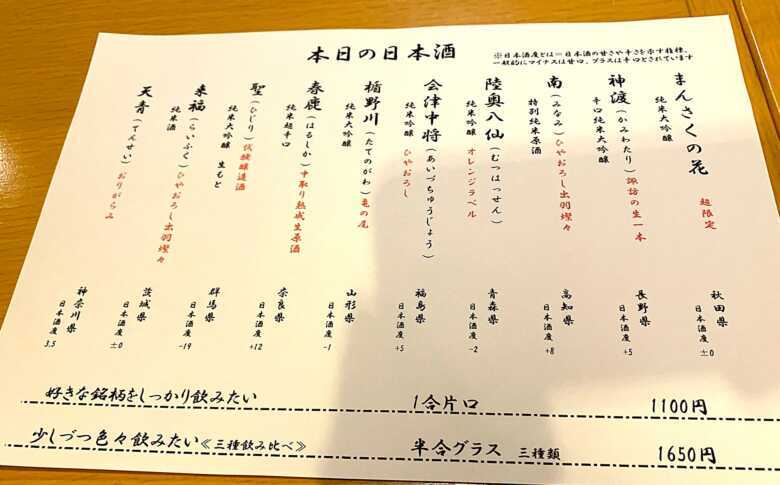 本日の日本酒
※日本酒度とは＝日本酒の甘さや辛さを示す指標。
一般的にマイナスは甘口、プラスは辛口とされています
まんさくの花 超限定
純米大吟醸
秋田県
日本酒度 ±0
神渡（かみわたり）諏訪の生一本
辛口純米大吟醸
長野県
日本酒度 +5
南（みなみ）ひやおろし出羽燦々
特別純米原酒
高知県
日本酒度 +8
陸奥八仙（むつはっせん）
純米吟醸 オレンジラベル
青森県
日本酒度 -2
会津中将（あいづちゅうじょう）
純米吟醸 ひやおろし
福島県
日本酒度 +5
楯野川（たてのがわ）亀の尾
純米大吟醸
山形県
日本酒度 -1
春鹿（はるしか）中取り熟成生原酒
純米超辛口
奈良県
日本酒度 +12
聖（ひじり）試験醸造酒
純米大吟醸 生もと
群馬県
日本酒度 -19
来福（らいふく）ひやおろし出羽燦々
純米酒
茨城県
日本酒度 ±0
天青（てんせい）おりがらみ
神奈川県
日本酒度 3.5
好きな銘柄をしっかり飲みたい 1合片口 1100円
少しづつ色々飲みたい《三種飲み比べ》 半合グラス 三種類 1650円